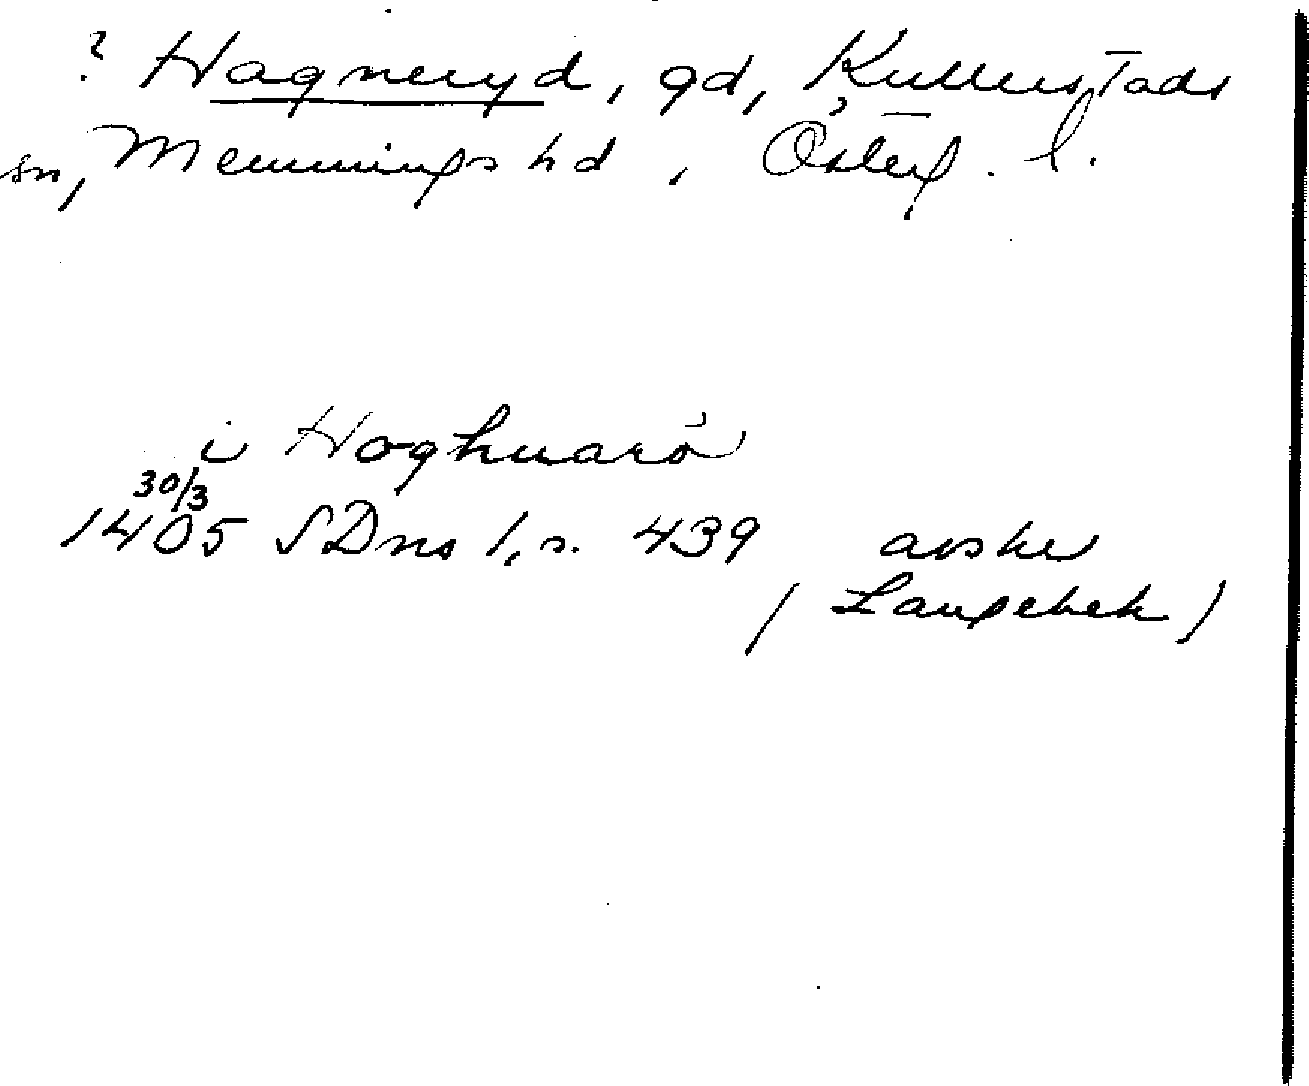 ? Hagneryd, gd, Kullerstads
sn, Memmings hd, Österg. l.
i Hoghuarö
30/3
1405 SDns 1, s. 439 avskr
(Langebek)